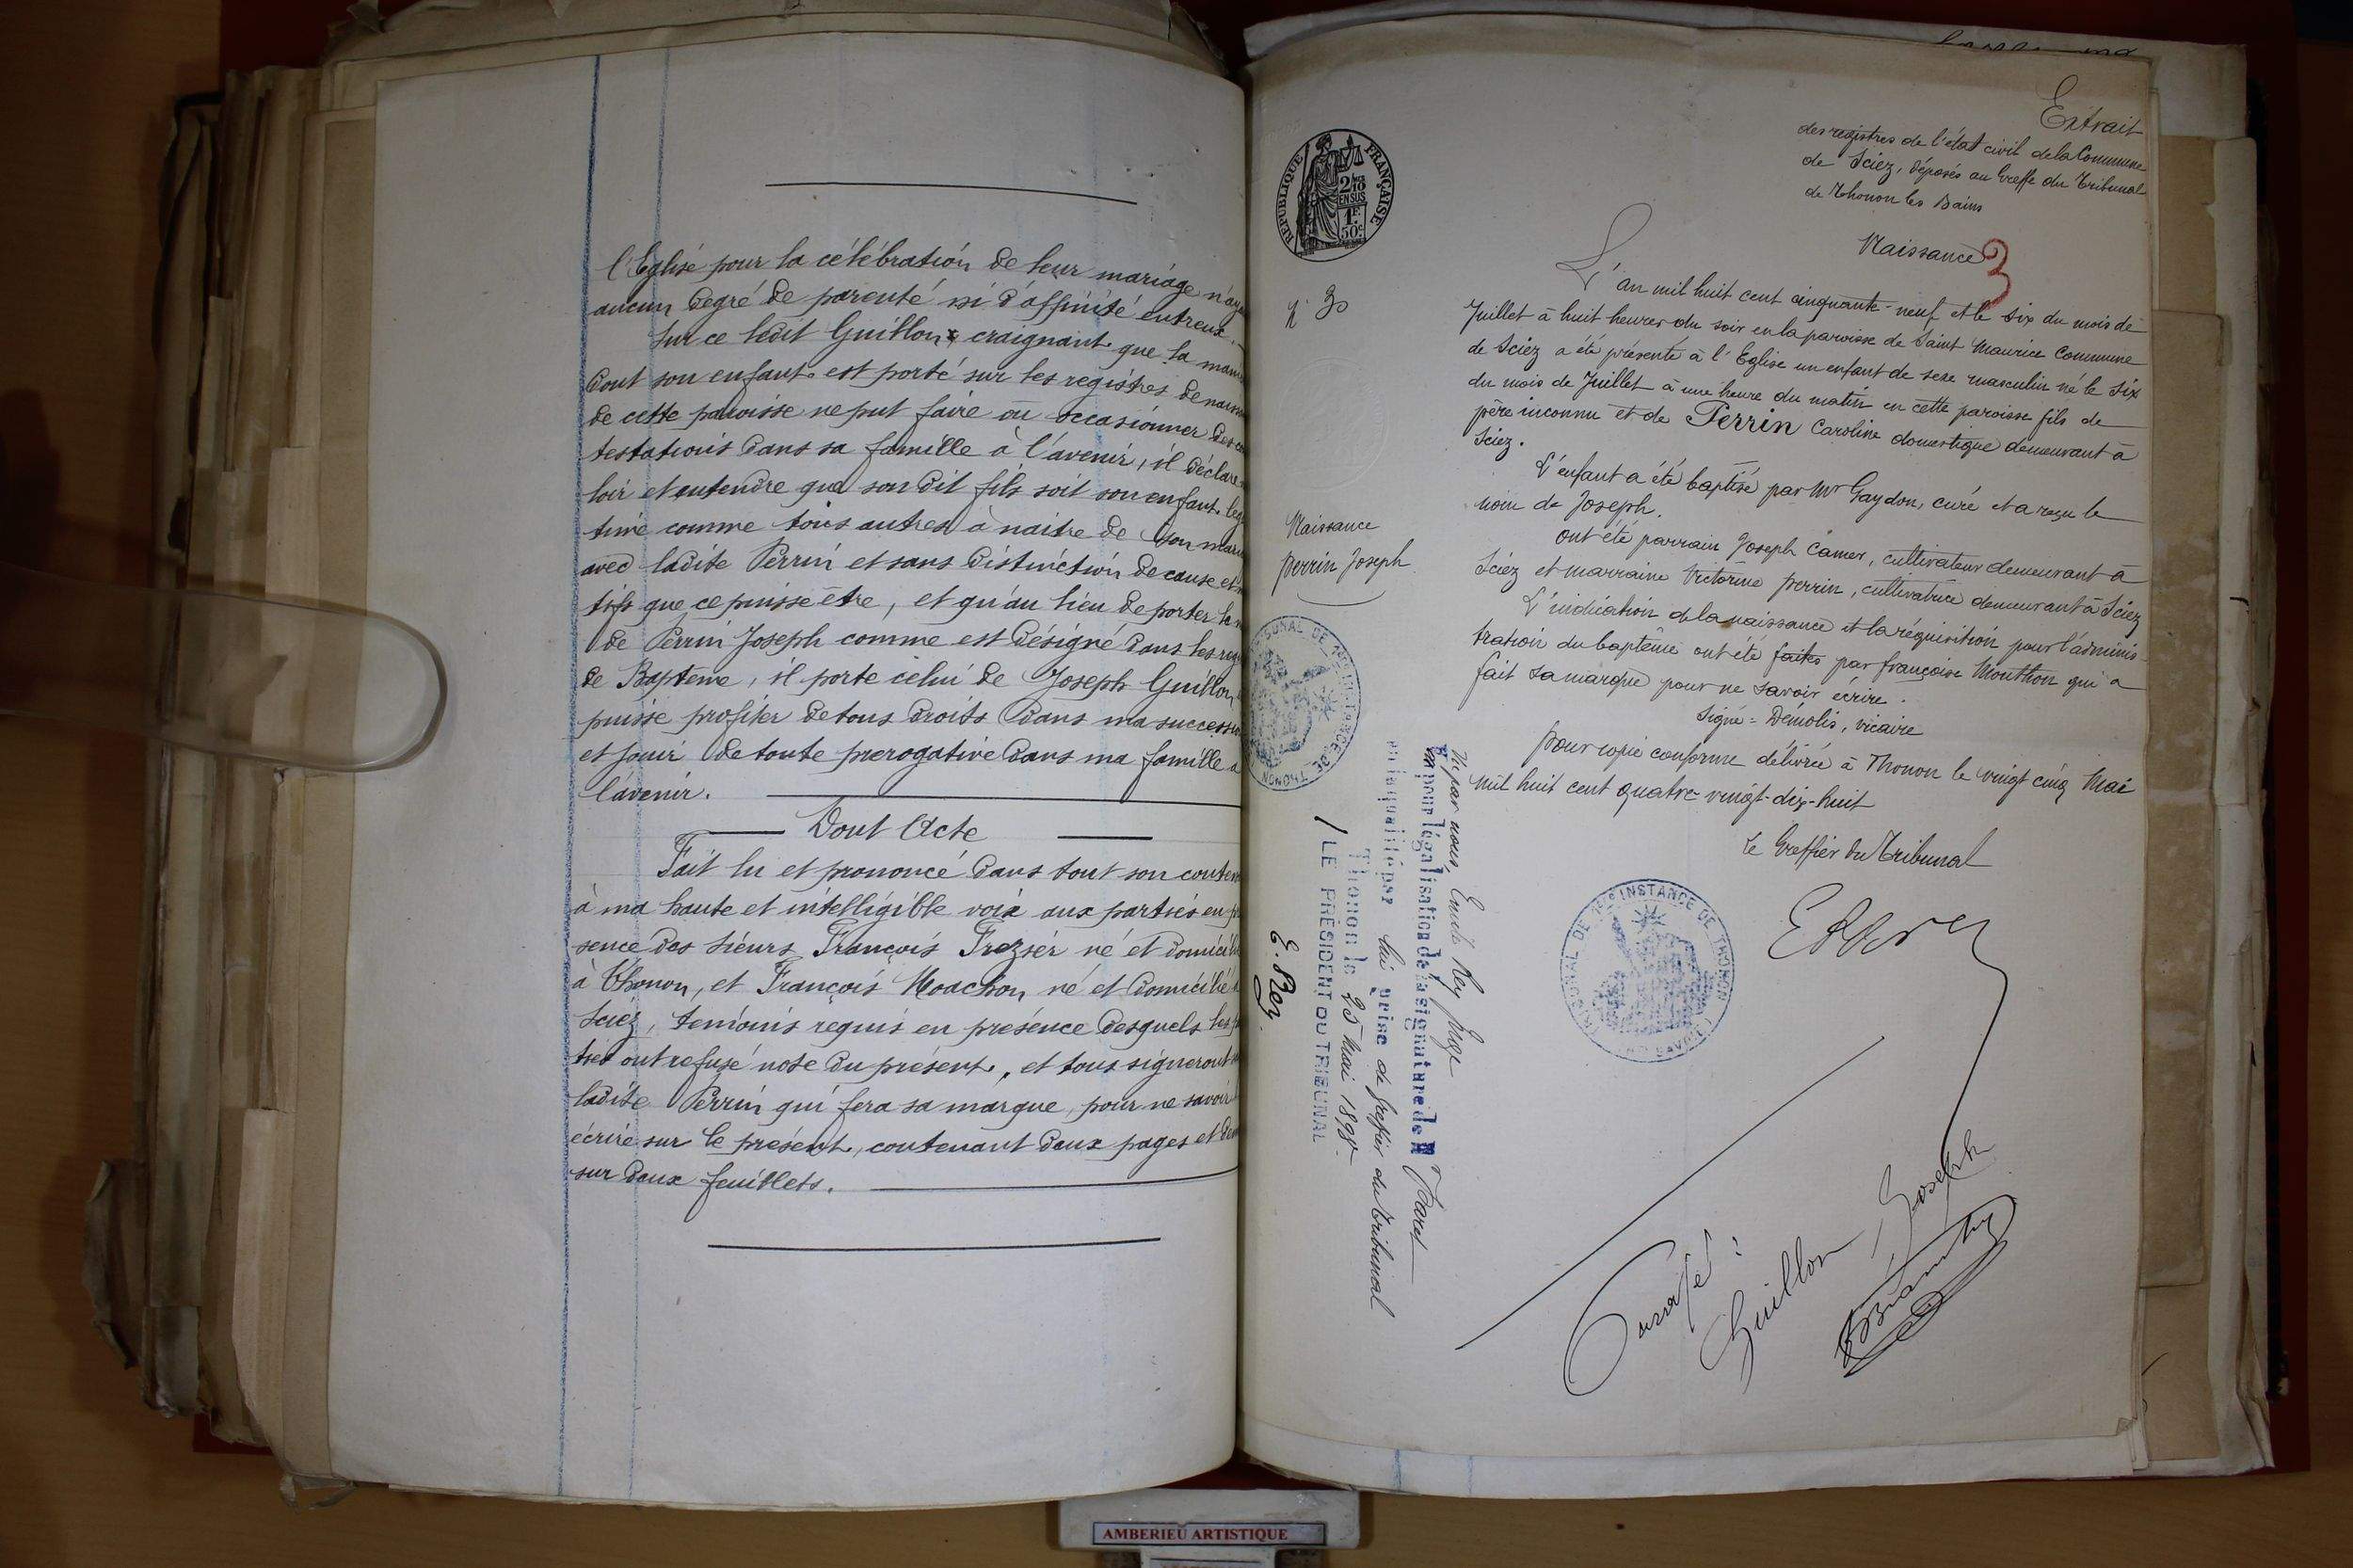 l'Eglise pour la célébration de leur mariage n'aya
aucun degré de parenté ni d'affinité entreux.
Sur ce ledit Guillon craignant que la mani
dont son enfant est porté sur les registres de naiss
de cette paroisse ne put faire ou occasionner des con
testations dans sa famille à l'avenir, il déclare
loir et entendre que son dit fils soit son enfant leg
time comme tous autres à naitre de son maria
avec ladite Perrin et sans distinction de cause et
tifs que ce puisse être, et qu'au lieu de porter le n
de Perrin Joseph comme est désigné dans les reg
de Baptême, il porte celui de Joseph Guillon
puisse profiter de tous droits dans ma succession
et jouir de toute prerogative dans ma famille a
l'avenir.
Dont Acte
Fait lu et prononcé dans tout son conten
à ma haute et intelligible voix aux parties en pr
sence des sieurs François Frezier né et domicili
à Thonon, et François Moachon né et domicilié
Sciez, temoins requis en présence desquels les p
ties ont refusé note du présent, et tous signeront
ladite Perrin qui fera sa marque, pour ne savoir
écrire sur le présent, contenant deux pages et dem
sur deux feuillets.
Extrait
des registres de l'état civil de la Commune
de Sciez, déposés au Greffe du Tribunal
de Thonon les Bains
RÉPUBLIQUE FRANÇAISE
EN SUS
1F
50c
Naissance
3
L'an mil huit cent cinquante-neuf et le six du mois de
Juillet à huit heures du soir en la paroisse de Saint Maurice Commune
de Sciez a été présenté à l'Eglise un enfant de sexe masculin né le six
du mois de Juillet à une heure du matin en cette paroisse fils de
père inconnu et de Perrin Caroline domestique demeurant à
Sciez.
L'enfant a été baptisé par Mr Gaydon, curé et a reçu le
nom de Joseph.
Naissance
Perrin Joseph
ont été parrain Joseph Camer, cultivateur demeurant à
Sciez et marraine Victorine Perrin, cultivatrice demeurant à Sciez
L'indication de la naissance et la réquisition pour l'adminis-
tration du baptême ont été faites par françoise Mouthon qui a
fait sa marque pour ne savoir écrire.
Signé = Démolis, vicaire
pour copie conforme délivrée à Thonon le vingt cinq Mai
mil huit cent quatre-vingt-dix-huit
Le Greffier du Tribunal
TRIBUNAL DE 1ère INSTANCE DE THONON
TRIBUNAL DE 1ère INSTANCE DE THONON
Vu par nous, Emile Rey Juge
pour légalisation de la signature de M Paret
en la qualité par lui prise de greffier du Tribunal
Thonon le 25 Mai 1898
LE PRÉSIDENT DU TRIBUNAL
E. Rey
Paraphé :
Guillon Joseph
AMBERIEU ARTISTIQUE